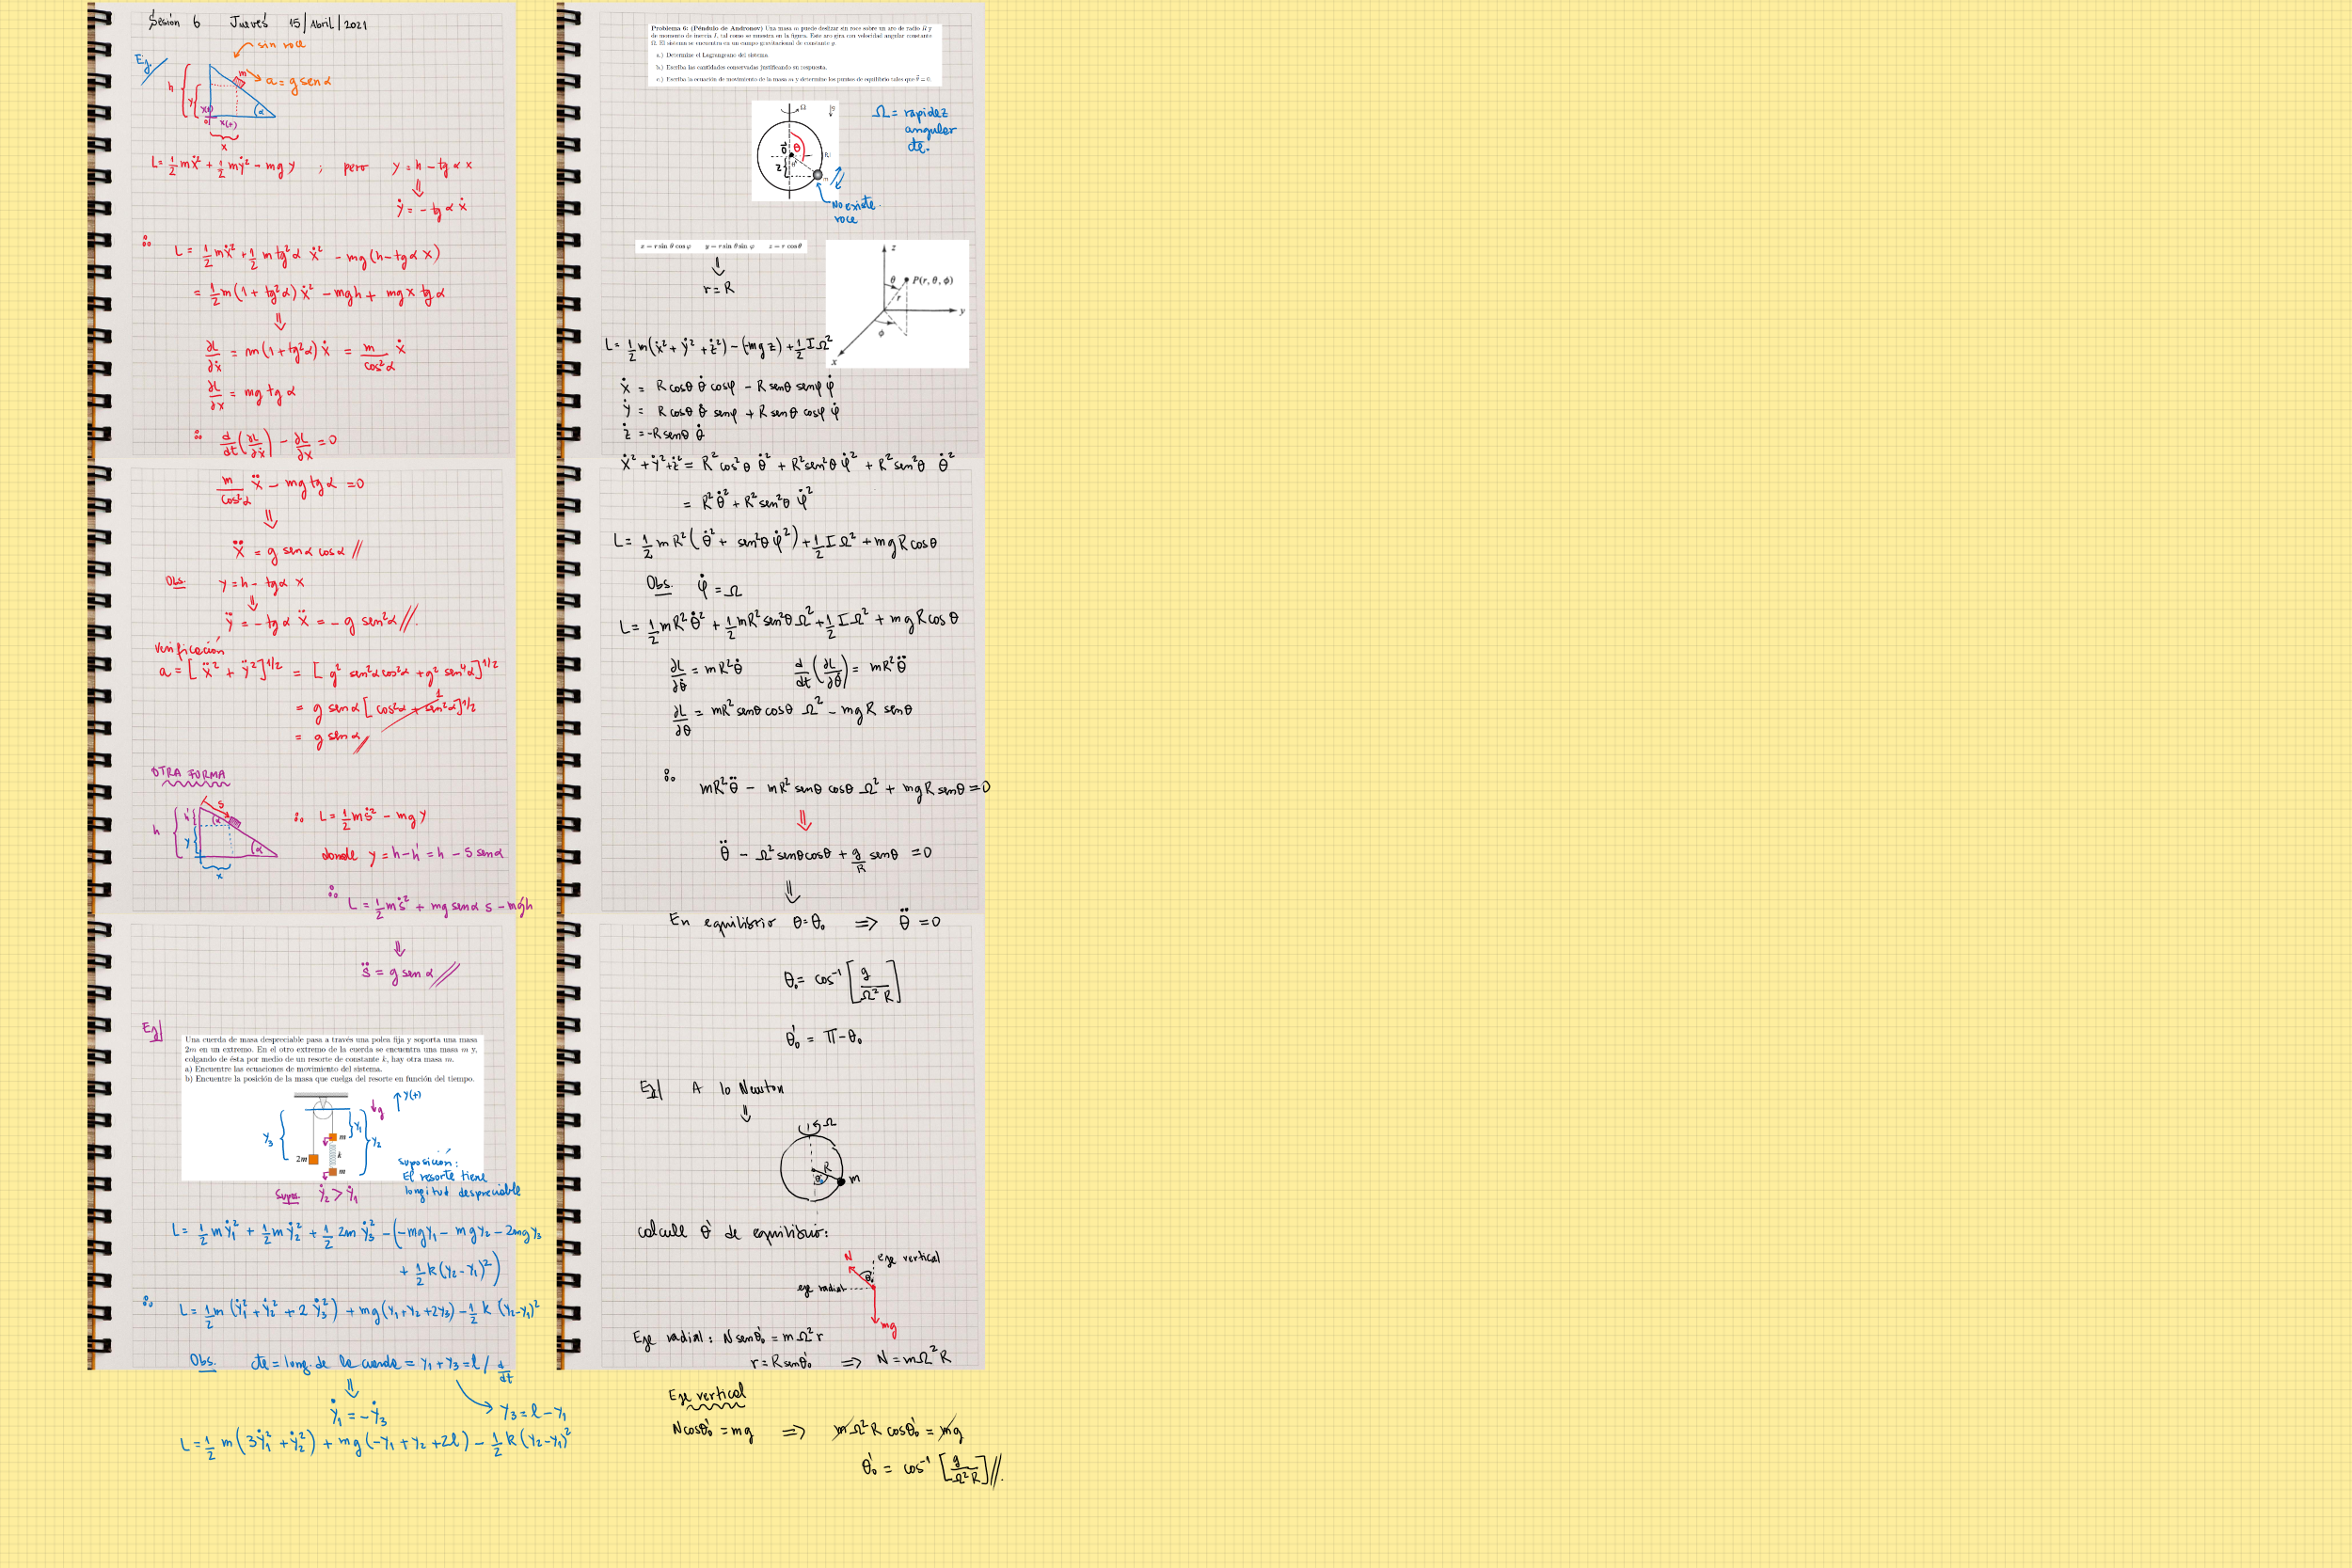 Sesión 6 Jueves 15/Abril/2021
sin roce
Ej/
m
a = g sen α
h
y
α
x(t)
x
L = 1/2 mẋ² + 1/2 mẏ² − mg y ; pero y = h − tg α x
⇓
ẏ = − tg α ẋ
∴ L = 1/2 mẋ² + 1/2 m tg²α ẋ² − mg(h − tg α x)
= 1/2 m(1 + tg²α) ẋ² − mgh + mg x tg α
⇓
∂L/∂ẋ = m(1 + tg²α) ẋ = m/cos²α ẋ
∂L/∂x = mg tg α
∴ d/dt(∂L/∂ẋ) − ∂L/∂x = 0
m/cos²α ẍ − mg tg α = 0
⇓
ẍ = g sen α cos α //
Obs. y = h − tg α x
⇓
ÿ = − tg α ẍ = − g sen²α //.
Verificación
a = [ẍ² + ÿ²]^1/2 = [g² sen²α cos²α + g² sen⁴α]^1/2
= g sen α [cos²α + sen²α]^1/2
1
= g sen α //
OTRA FORMA
s
h'
α
h
y
α
x
∴ L = 1/2 mṡ² − mg y
donde y = h − h' = h − s sen α
∴ L = 1/2 mṡ² + mg sen α s − mgh
⇓
s̈ = g sen α //
Ej/
Una cuerda de masa despreciable pasa a través una polea fija y soporta una masa
2m en un extremo. En el otro extremo de la cuerda se encuentra una masa m y,
colgando de ésta por medio de un resorte de constante k, hay otra masa m.
a) Encuentre las ecuaciones de movimiento del sistema.
b) Encuentre la posición de la masa que cuelga del resorte en función del tiempo.
↓g ↑y(+)
y₃
y₁
y₂
m
k
2m
m
Supos. ẏ₂ > ẏ₁
suposición:
El resorte tiene
longitud despreciable
L = 1/2 mẏ₁² + 1/2 mẏ₂² + 1/2 2m ẏ₃² − (−mgy₁ − mgy₂ − 2mgy₃
+ 1/2 k(y₂ − y₁)²)
∴ L = 1/2 m(ẏ₁² + ẏ₂² + 2ẏ₃²) + mg(y₁ + y₂ + 2y₃) − 1/2 k(y₂ − y₁)²
Obs. cte = long. de la cuerda = y₁ + y₃ = l / d/dt
⇓
ẏ₁ = −ẏ₃
y₃ = l − y₁
L = 1/2 m(3ẏ₁² + ẏ₂²) + mg(−y₁ + y₂ + 2l) − 1/2 k(y₂ − y₁)²
Problema 6: (Péndulo de Andronov) Una masa m puede deslizar sin roce sobre un aro de radio R y
de momento de inercia I, tal como se muestra en la figura. Este aro gira con velocidad angular constante
Ω. El sistema se encuentra en un campo gravitacional de constante g.
a.) Determine el Lagrangeano del sistema.
b.) Escriba las cantidades conservadas justificando su respuesta.
c.) Escriba la ecuación de movimiento de la masa m y determine los puntos de equilibrio tales que θ̈ = 0.
Ω
g
Ω = rapidez
angular
cte.
θ
0
R
z
m
No existe
roce
x = r sin θ cos φ y = r sin θ sin φ z = r cos θ
⇓
r = R
z
θ
P(r, θ, ϕ)
r
y
ϕ
x
L = 1/2 m(ẋ² + ẏ² + ż²) − (−mg z) + 1/2 I Ω²
ẋ = R cosθ θ̇ cosφ − R senθ senφ φ̇
ẏ = R cosθ θ̇ senφ + R senθ cosφ φ̇
ż = −R senθ θ̇
ẋ² + ẏ² + ż² = R² cos²θ θ̇² + R² sen²θ φ̇² + R² sen²θ θ̇²
= R² θ̇² + R² sen²θ φ̇²
L = 1/2 m R²(θ̇² + sen²θ φ̇²) + 1/2 I Ω² + mgR cosθ
Obs. φ̇ = Ω
L = 1/2 mR² θ̇² + 1/2 mR² sen²θ Ω² + 1/2 I Ω² + mgR cosθ
∂L/∂θ̇ = mR² θ̇ d/dt(∂L/∂θ̇) = mR² θ̈
∂L/∂θ = mR² senθ cosθ Ω² − mgR senθ
∴ mR² θ̈ − mR² senθ cosθ Ω² + mgR senθ = 0
⇓
θ̈ − Ω² senθ cosθ + g/R senθ = 0
⇓
En equilibrio θ = θ₀ ⇒ θ̈ = 0
θ₀ = cos⁻¹ [g/Ω²R]
θ₀' = π − θ₀
Ej/ A lo Newton
⇓
Ω
R
θ₀'
m
calcule θ' de equilibrio:
N
eje vertical
θ₀'
eje radial
mg
Eje radial: N senθ₀' = mΩ² r
r = R senθ₀' ⇒ N = mΩ² R
Eje vertical
N cosθ₀' = mg ⇒ mΩ² R cosθ₀' = mg
θ₀' = cos⁻¹ [g/Ω²R] //.